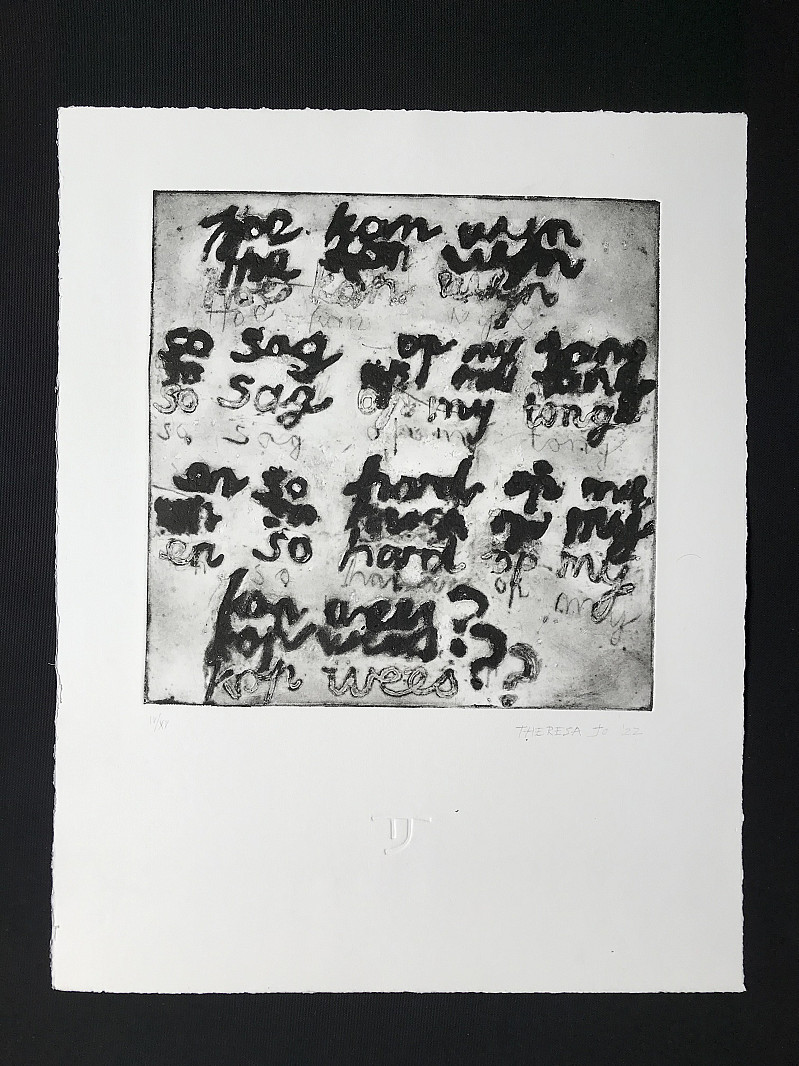 Hoe kan wyn
Hoe kan wyn
Hoe kan wyn
Hoe kan wyn
so sag op my tong
so sag op my tong
so sag op my tong
so sag op my tong
en so hard op my
en so hard op my
en so hard op my
so hard op my
kop wees?
kop wees?
kop wees?
THERESA JO '22
TJ